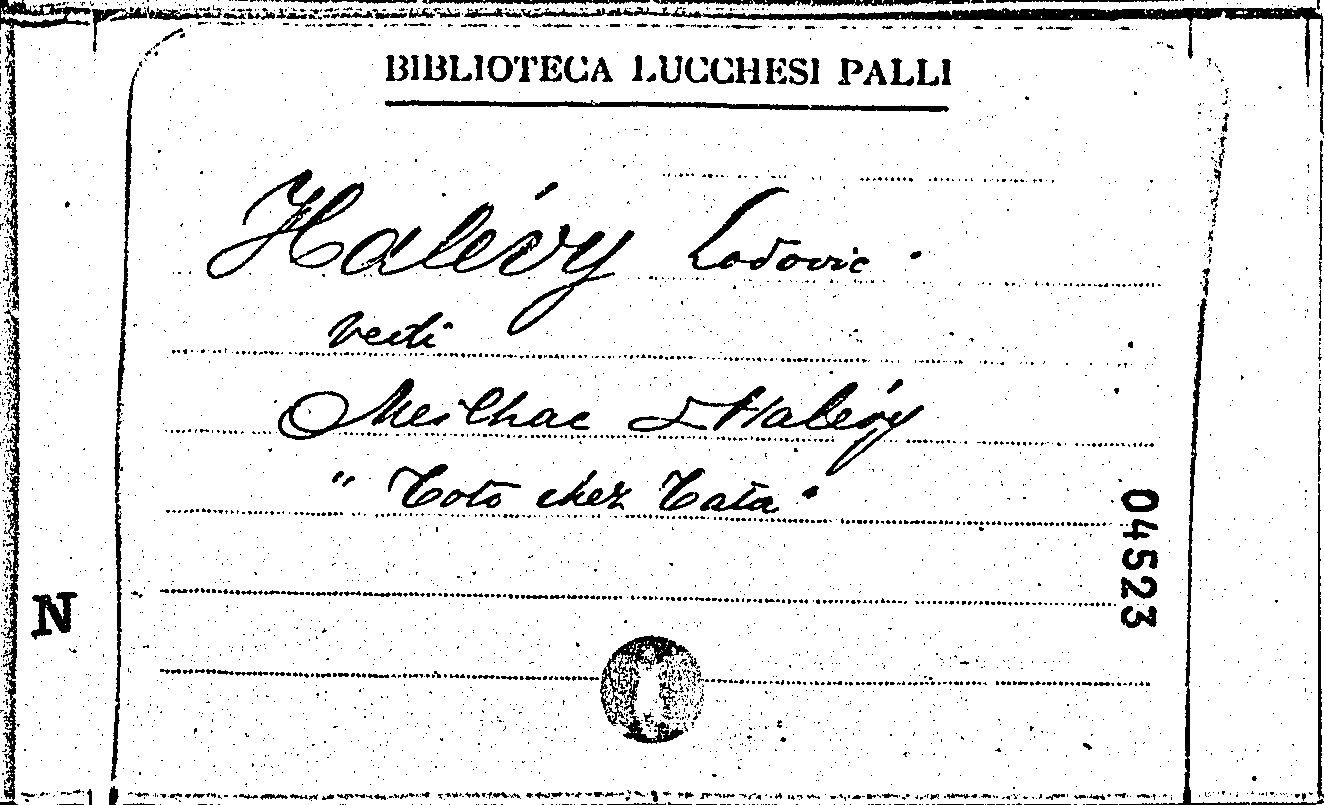 BIBLIOTECA LUCCHESI PALLI
Halévy Lodovic.
vedi
Meilhac & Halévy
"Toto chez Tata"
04523
N